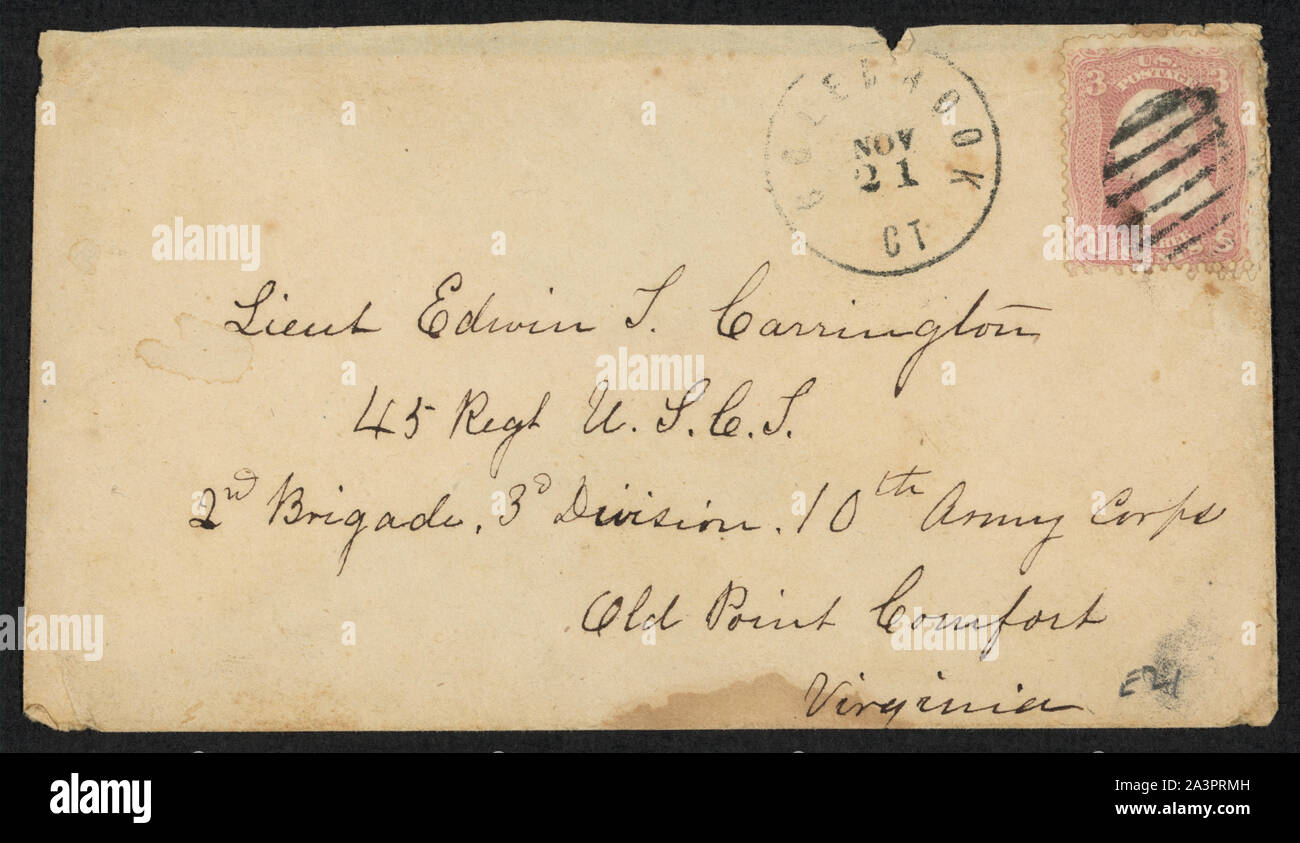 COLEBROOK
NOV
21
CT
3 U.S. 3
POSTAGE
Lieut Edwin S. Carrington
45 Regt U.S.C.T.
2nd Brigade, 3d Division. 10th Army Corps
Old Point Comfort
Virginia
E21
alamy
alamy
Image ID: 2A3PRMH
www.alamy.com